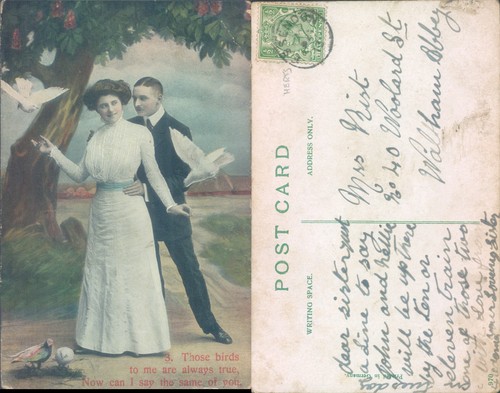 3. Those birds
to me are always true,
Now can I say the same of you.
POST CARD
ADDRESS ONLY.
WRITING SPACE.
Printed in Germany
HERTS
Mrs Nist
No 40 Woolard St
Waltham Abbey
Dear sister just
a line to say
John and Nellie
will be up there
by the ten or
eleven train
one of those two
from a loving sister